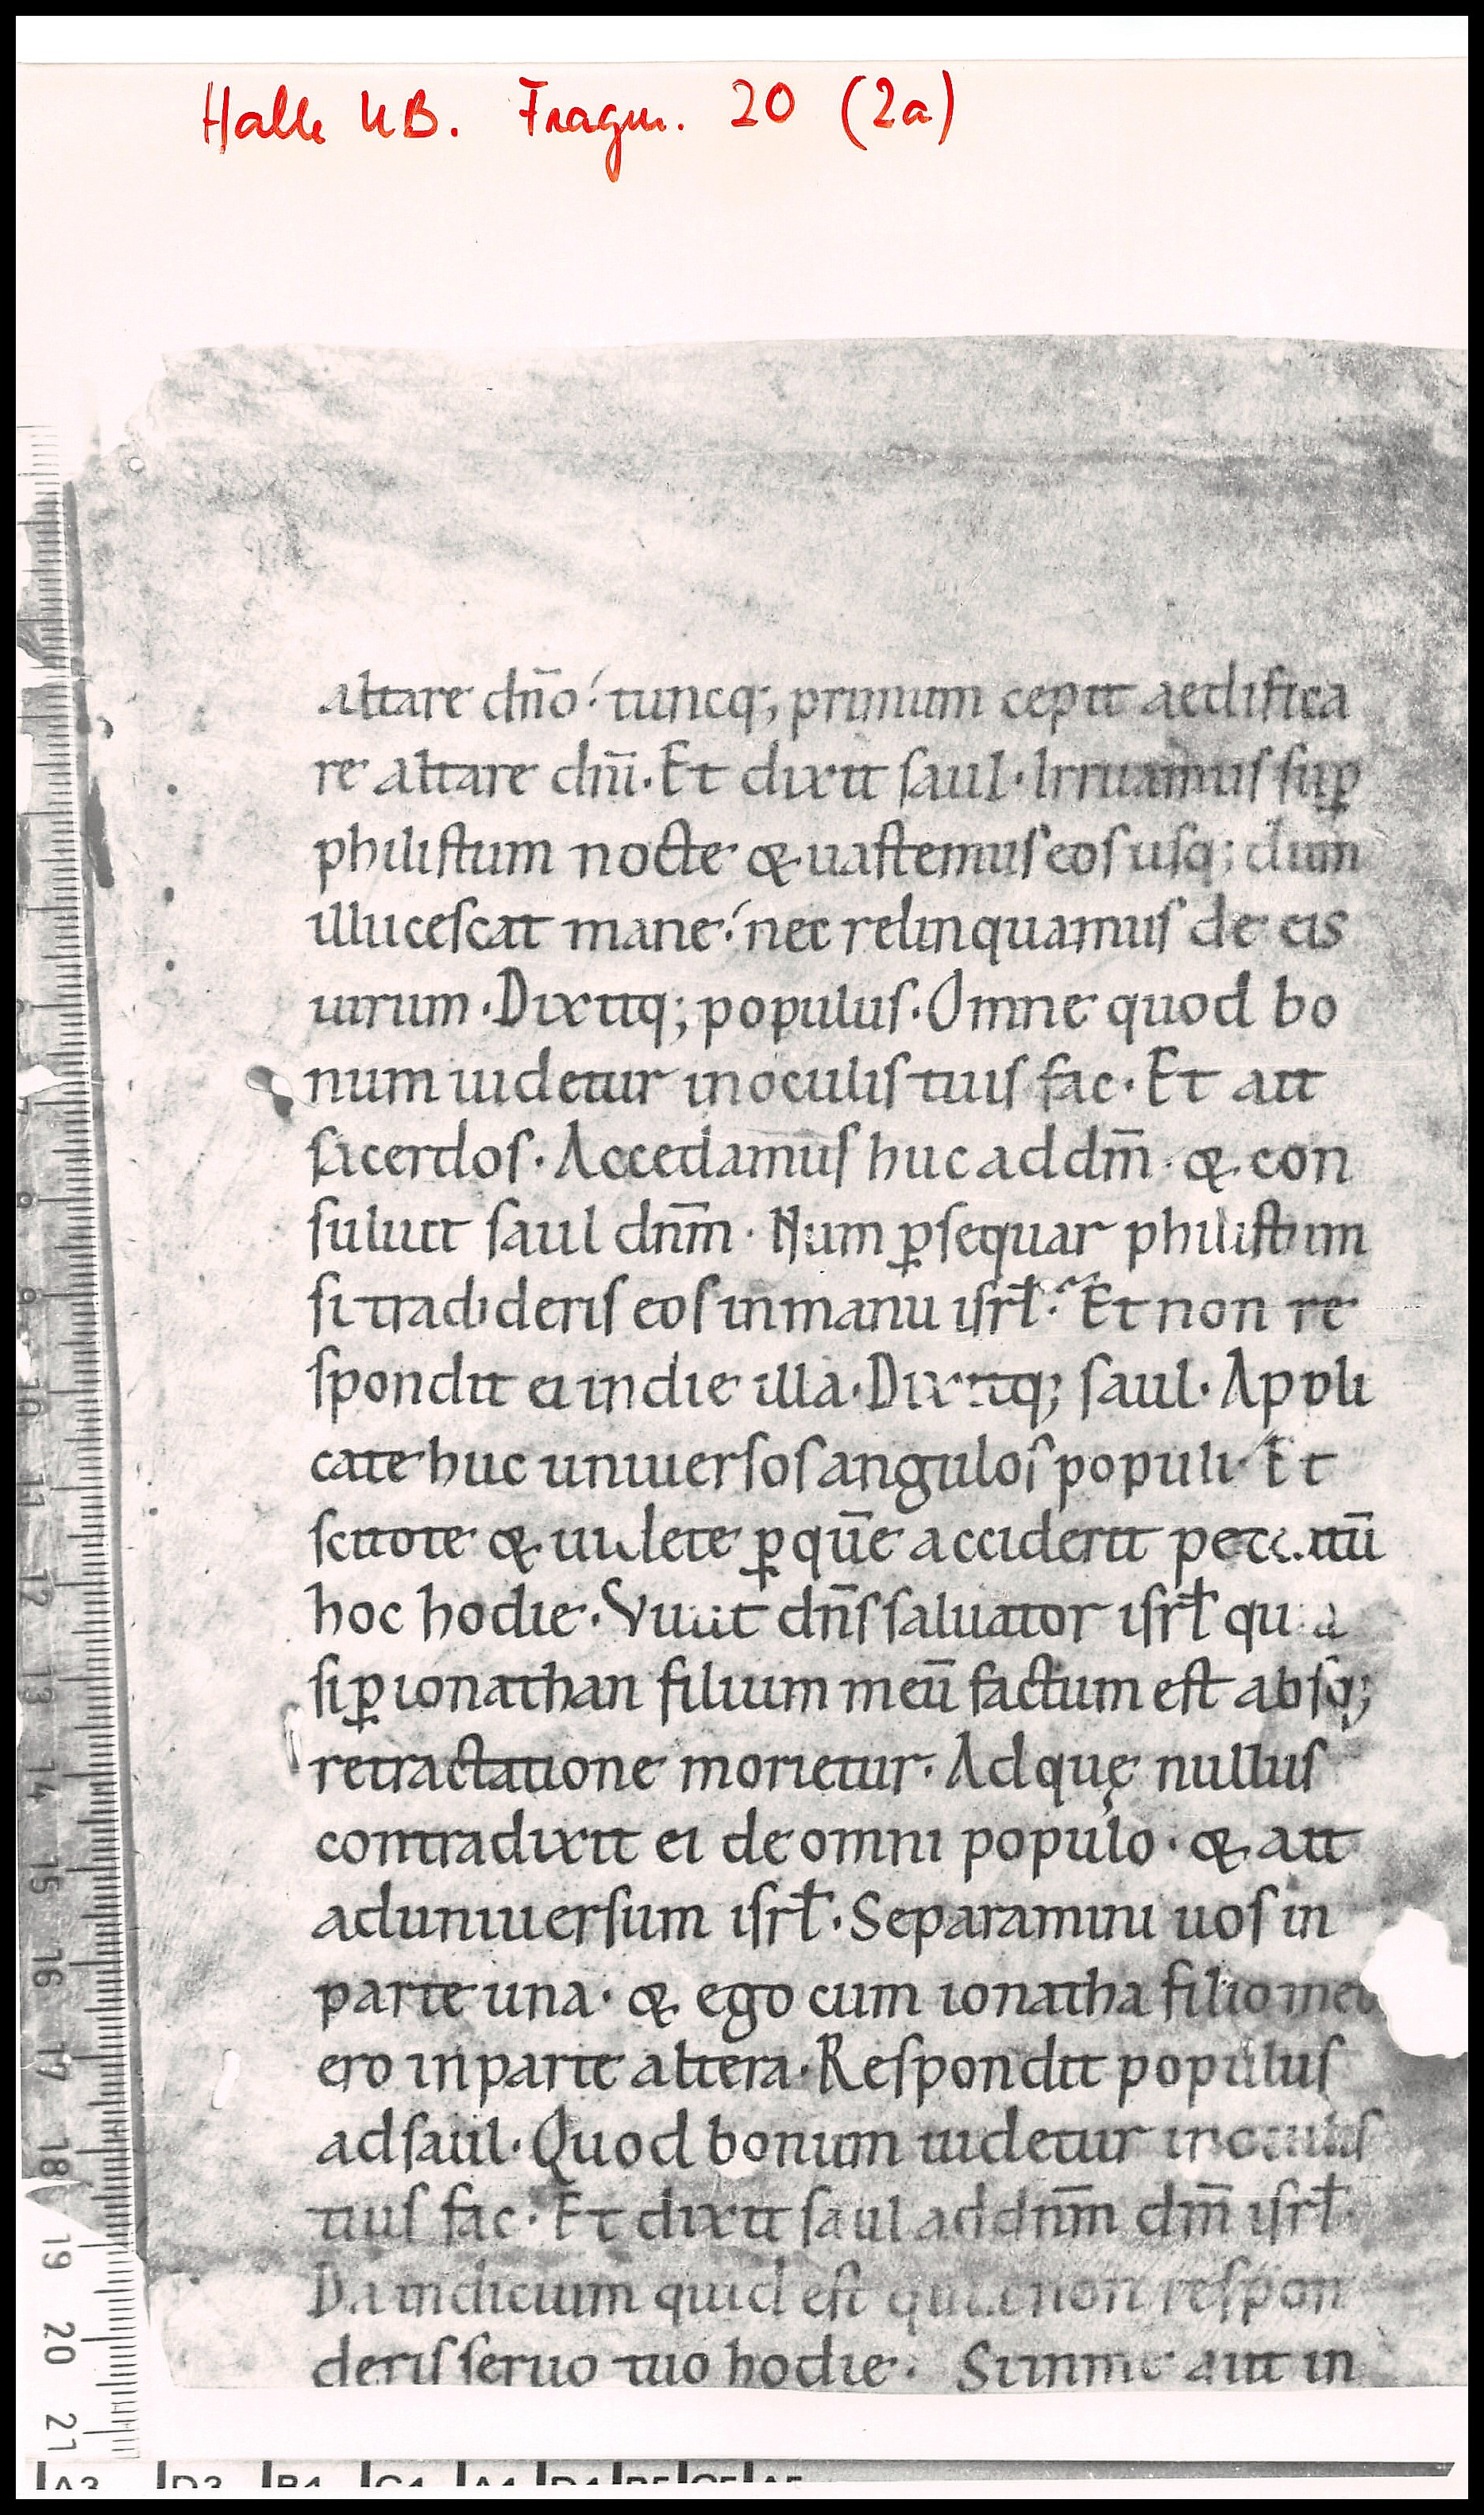 Halle UB. Fragm. 20 (2a)
altare dn̄o. tuncq; primum cepit aedifica
re altare dn̄i. Et dixit saul. Irruamus sup̱
philistum nocte & uastemus eos usq; dum
illucescat mane. nec relinquamus de eis
uirum. Dixitq; populus. Omne quod bo
num uidetur in oculis tuis fac. Et ait
sacerdos. Accedamus huc ad dm̄. & con
suluit saul dnm̄. Num ꝑsequar philistiim
si tradideris eos in manu isrł. Et non re
spondit ei in die illa. Dixitq; saul. Appli
cate huc uniuersos angulos populi. Et
scitote & uidete ꝑ quē acciderit
hoc hodie. Viuit dn̄s saluator isrł quia
si ꝑ ionathan filium meū factum est absq;
retractatione morietur. Ad quę nullus
contradixit ei de omni populo. & ait
ad uniuersum isrł. Separamini uos in
parte una. & ego cum ionatha filio meo
ero in parte altera. Respondit populus
ad saul. Quod bonum uidetur in oculis
tuis fac. Et dixit saul ad dnm̄ dm̄ isrł.
Da indicium quid est non respon
deris seruo tuo hodie. aut in
7
8
9
10
11
12
13
14
15
16
17
18
19
20
21